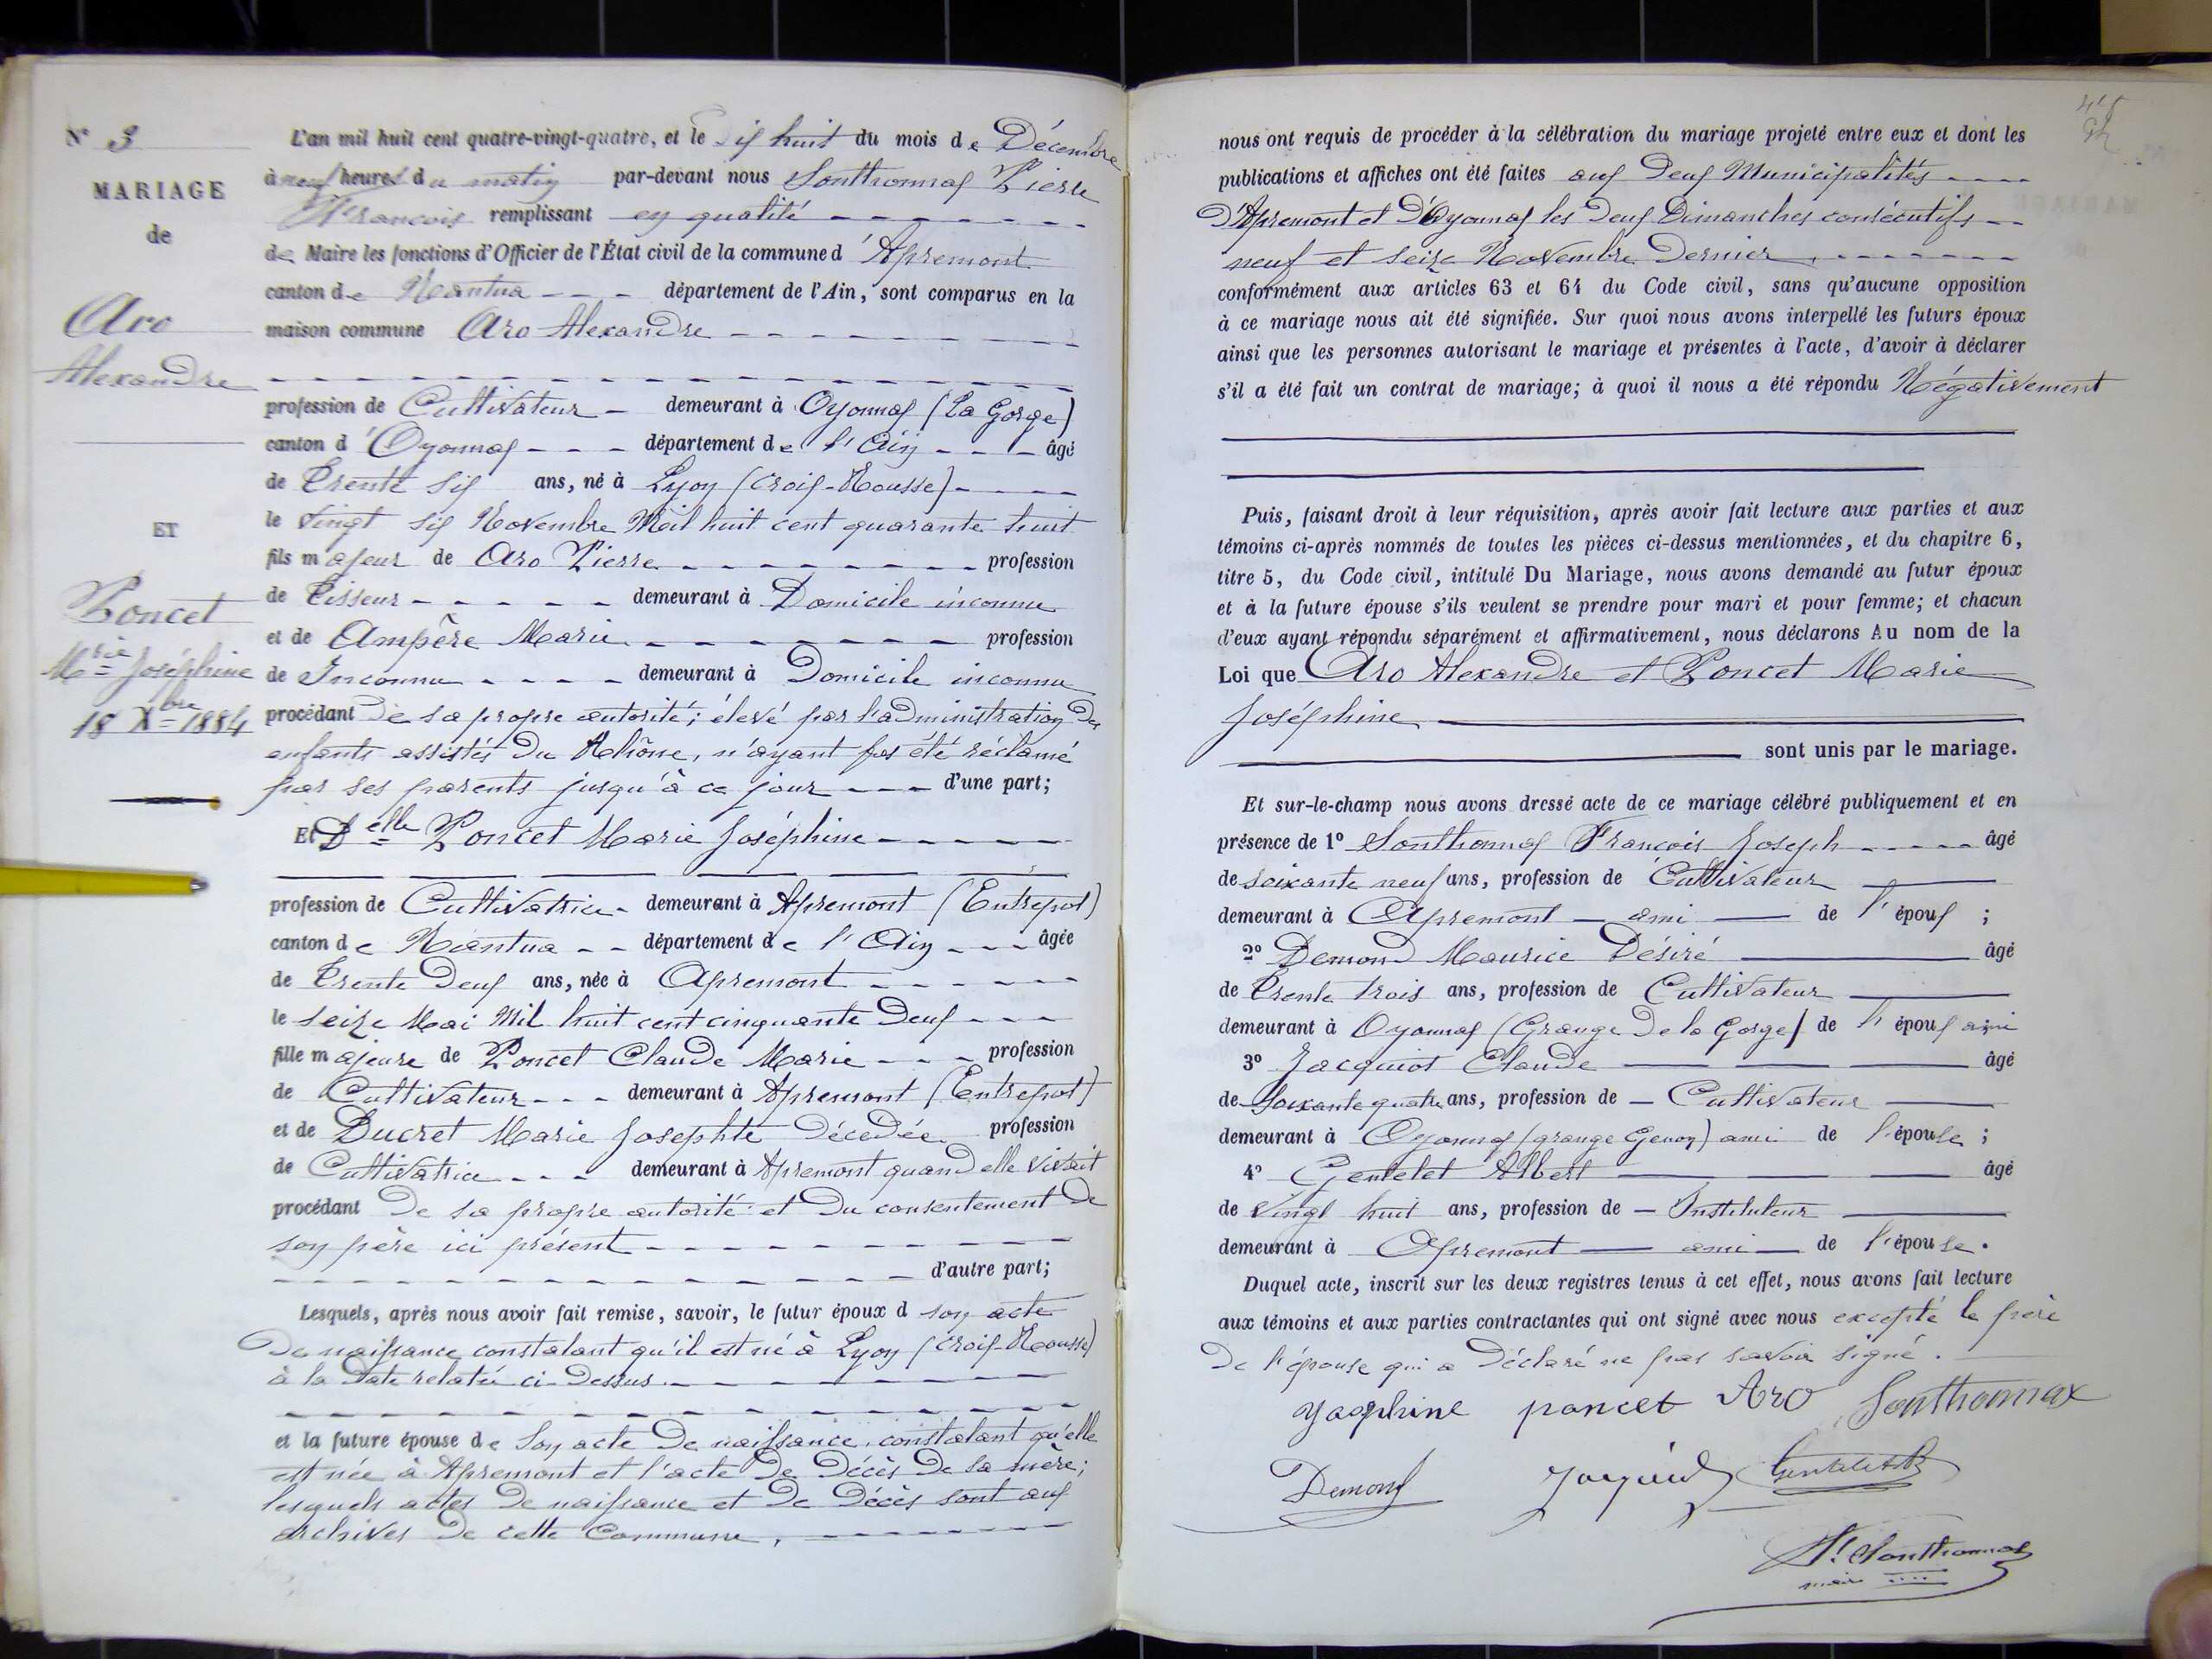 N° 3
MARIAGE
de
Aro
Alexandre
ET
Poncet
Mrie Joséphine
18 Xbre 1884
L'an mil huit cent quatre-vingt-quatre, et le dix huit du mois de Décembre
à neuf heures du matin par-devant nous Sonthonnax Pierre
François remplissant en qualité
de Maire les fonctions d'Officier de l'État civil de la commune d'Apremont
canton de Nantua département de l'Ain, sont comparus en la
maison commune Aro Alexandre
profession de Cultivateur demeurant à Oyonnax (La Gorge)
canton d'Oyonnax département de l'Ain âgé
de Trente six ans, né à Lyon (Croix-Rousse)
le vingt six Novembre Mil huit cent quarante huit
fils majeur de Aro Pierre profession
de Tisseur demeurant à Domicile inconnu
et de Ampère Marie profession
de Inconnu demeurant à Domicile inconnu
procédant de sa propre autorité; élevé par l'administration des
enfants assistés du Rhône, n'ayant pas été réclamé
par ses parents jusqu'à ce jour d'une part;
Et Delle Poncet Marie Joséphine
profession de Cultivatrice demeurant à Apremont (Entrepot)
canton de Nantua département de l'Ain âgée
de Trente deux ans, née à Apremont
le seize Mai Mil huit cent cinquante deux
fille majeure de Poncet Claude Marie profession
de Cultivateur demeurant à Apremont (Entrepot)
et de Ducret Marie Josephte décédée profession
de Cultivatrice demeurant à Apremont quand elle vivait
procédant de sa propre autorité et du consentement de
son père ici présent
d'autre part;
Lesquels, après nous avoir fait remise, savoir, le futur époux d son acte
de naissance constatant qu'il est né à Lyon (Croix-Rousse)
à la date relatée ci-dessus
et la future épouse de son acte de naissance, constatant qu'elle
est née à Apremont et l'acte de décès de sa mère;
lesquels actes de naissance et de décès sont aux
archives de cette Commune.
nous ont requis de procéder à la célébration du mariage projeté entre eux et dont les
publications et affiches ont été faites aux deux Municipalités
d'Apremont et d'Oyonnax les deux Dimanches consécutifs
neuf et seize Novembre dernier
conformément aux articles 63 et 64 du Code civil, sans qu'aucune opposition
à ce mariage nous ait été signifiée. Sur quoi nous avons interpellé les futurs époux
ainsi que les personnes autorisant le mariage et présentes à l'acte, d'avoir à déclarer
s'il a été fait un contrat de mariage; à quoi il nous a été répondu Négativement
Puis, faisant droit à leur réquisition, après avoir fait lecture aux parties et aux
témoins ci-après nommés de toutes les pièces ci-dessus mentionnées, et du chapitre 6,
titre 5, du Code civil, intitulé Du Mariage, nous avons demandé au futur époux
et à la future épouse s'ils veulent se prendre pour mari et pour femme; et chacun
d'eux ayant répondu séparément et affirmativement, nous déclarons Au nom de la
Loi que Aro Alexandre et Poncet Marie
Joséphine
sont unis par le mariage.
Et sur-le-champ nous avons dressé acte de ce mariage célébré publiquement et en
présence de 1° Sonthonnax François Joseph âgé
de soixante neuf ans, profession de Cultivateur
demeurant à Apremont ami de l'époux ;
2° Demond Maurice Désiré âgé
de Trente trois ans, profession de Cultivateur
demeurant à Oyonnax (Grange de la Gorge) de l'époux ami
3° Jacquiot Claude âgé
de Soixante quatre ans, profession de Cultivateur
demeurant à Oyonnax (grange Genoz) ami de l'épouse ;
4° Gentelet Albert âgé
de Vingt huit ans, profession de Instituteur
demeurant à Apremont ami de l'épouse.
Duquel acte, inscrit sur les deux registres tenus à cet effet, nous avons fait lecture
aux témoins et aux parties contractantes qui ont signé avec nous excepté le père
de l'épouse qui a déclaré ne pas savoir signé.
Josephine poncet Aro Sonthonnax
Demond
Sonthonnax
maire